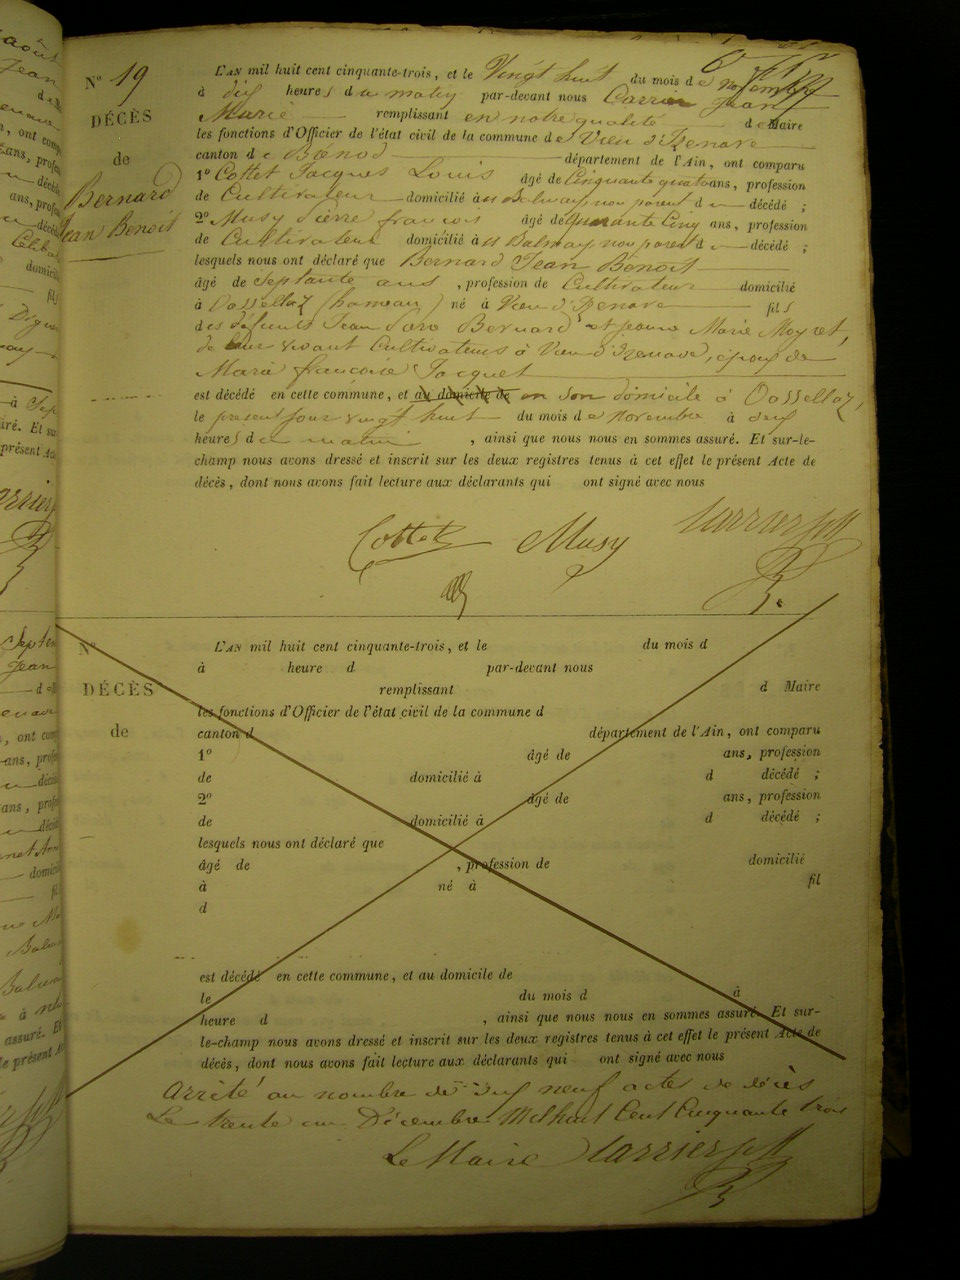 N° 19
DÉCÈS
de
Bernard
Jean Benoit
L'AN mil huit cent cinquante-trois, et le Vingt huit du mois de novembre
à dix heures du matin par-devant nous Carrier Jean
Marie remplissant en notre qualité de Maire
les fonctions d'Officier de l'état civil de la commune de Vieu d'Izenave
canton de Brénod département de l'Ain, ont comparu
1° Cottet Jacques Louis âgé de Cinquante quatre ans, profession
de Cultivateur domicilié à Balmay non parent du décédé ;
2° Musy Pierre françois âgé de Quarante Cinq ans, profession
de Cultivateur domicilié à Balmay non parent du décédé ;
lesquels nous ont déclaré que Bernard Jean Benoit
âgé de Septante ans, profession de Cultivateur domicilié
à Oossellaz (hameau) né à Vieu d'Izenave fils
des défunts Jean Bernard et Jeanne Marie Moyret,
de leur vivant Cultivateurs à Vieu d'Izenave, époux de
Marie françoise Jacquet
est décédé en cette commune, et au domicile de en son domicile à Oossellaz,
le présent jour vingt huit du mois de Novembre à deux
heures du matin, ainsi que nous nous en sommes assuré. Et sur-le-
champ nous avons dressé et inscrit sur les deux registres tenus à cet effet le présent Acte de
décès, dont nous avons fait lecture aux déclarants qui ont signé avec nous
Cottet Musy Carrier
N°
DÉCÈS
de
L'AN mil huit cent cinquante-trois, et le du mois d
à heure d par-devant nous
remplissant d Maire
les fonctions d'Officier de l'état civil de la commune d
canton d département de l'Ain, ont comparu
1° âgé de ans, profession
de domicilié à d décédé ;
2° âgé de ans, profession
de domicilié à d décédé ;
lesquels nous ont déclaré que
âgé de , profession de domicilié
à né à fil
d
est décédé en cette commune, et au domicile de
le du mois d à
heure d , ainsi que nous nous en sommes assuré. Et sur-
le-champ nous avons dressé et inscrit sur les deux registres tenus à cet effet le présent Acte de
décès, dont nous avons fait lecture aux déclarants qui ont signé avec nous
Arrêté au nombre de dix neuf actes de décès
Le trente un Décembre Mil huit Cent Cinquante trois
Le Maire Carrier